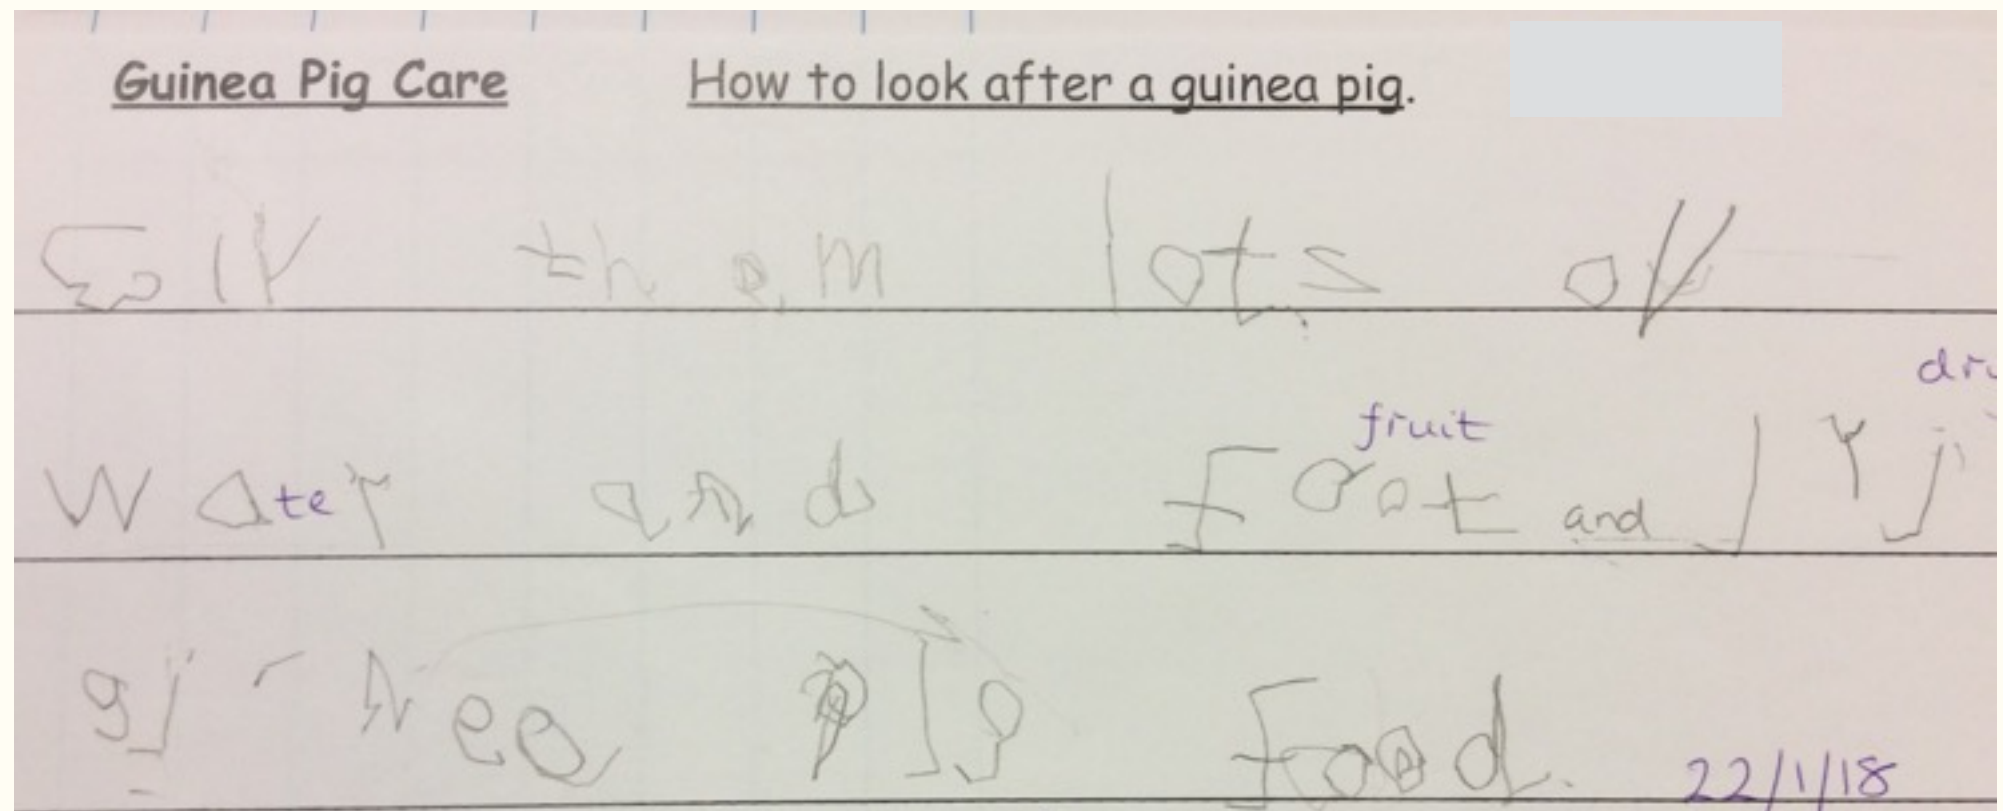 Guinea Pig Care How to look after a guinea pig.
Giv them lots of
dri
fruit
water and foot and
pig food.
22/1/18